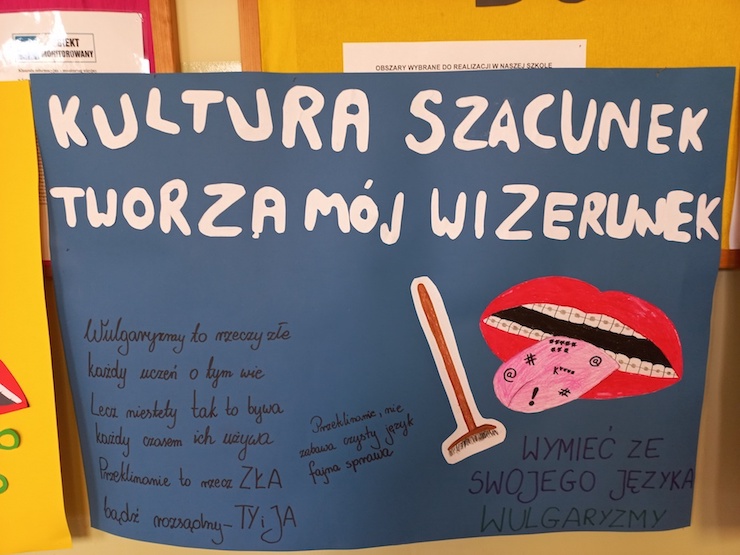 EKT
MONITOROWANY
OBSZARY WYBRANE DO REALIZACJI W NASZEJ SZKOLE
KULTURA SZACUNEK
TWORZĄ MÓJ WIZERUNEK
Wulgaryzmy to rzeczy złe
każdy uczeń o tym wie
Lecz niestety tak to bywa
każdy czasem ich używa
Przeklinanie to rzecz ZŁA
bądź rozsądny-TY i JA
Przeklinanie, nie
zabawa czysty język
fajna sprawa
*****
# *** @
@ K****
! #
WYMIEĆ ZE
SWOJEGO JĘZYKA
WULGARYZMY